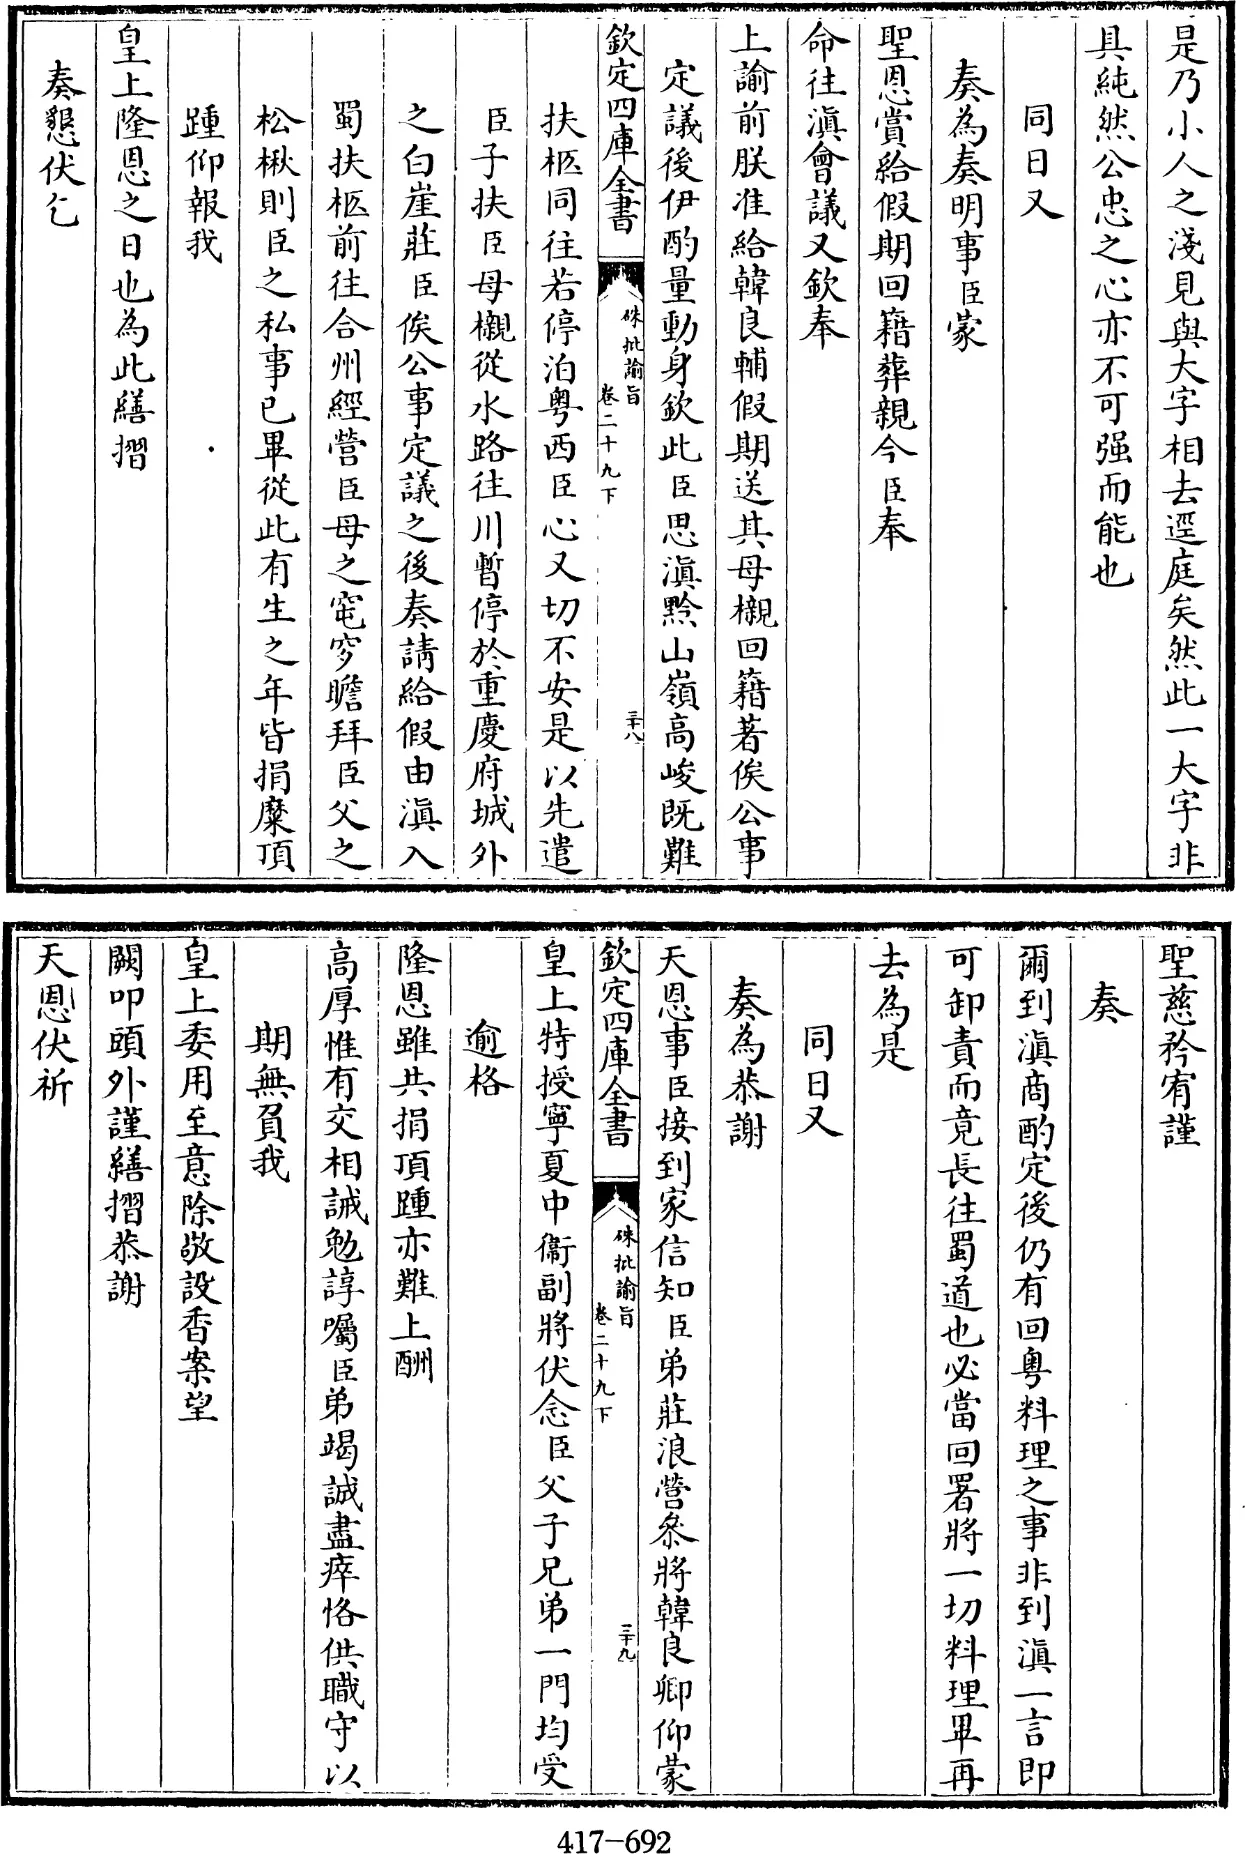 是乃小人之淺見與大字相去逕庭矣然此一大字非
具純然公忠之心亦不可强而能也
同日又
奏為奏明事臣蒙
聖恩賞給假期回籍葬親今臣奉
命往滇會議又欽奉
上諭前朕准給韓良輔假期送其母櫬回籍著俟公事
定議後伊酌量動身欽此臣思滇黔山嶺高峻既難
欽定四庫全書
硃批諭旨
卷二十九下
三十八
扶柩同往若停泊粤西臣心又切不安是以先遣
臣子扶臣母櫬從水路往川暫停於重慶府城外
之白崖莊臣俟公事定議之後奏請給假由滇入
蜀扶柩前往合州經營臣母之窀穸瞻拜臣父之
松楸則臣之私事已畢從此有生之年皆捐糜頂
踵仰報我
皇上隆恩之日也為此繕摺
奏懇伏乞
聖慈矜宥謹
奏
爾到滇商酌定後仍有回粤料理之事非到滇一言即
可卸責而竟長往蜀道也必當回署將一切料理畢再
去為是
同日又
奏為恭謝
天恩事臣接到家信知臣弟莊浪營叅將韓良卿仰蒙
欽定四庫全書
硃批諭旨
卷二十九下
三十九
皇上特授寧夏中衞副將伏念臣父子兄弟一門均受
逾格
隆恩雖共捐頂踵亦難上酬
高厚惟有交相誡勉諄囑臣弟竭誠盡瘁恪供職守以
期無負我
皇上委用至意除敬設香案望
闕叩頭外謹繕摺恭謝
天恩伏祈
417-692